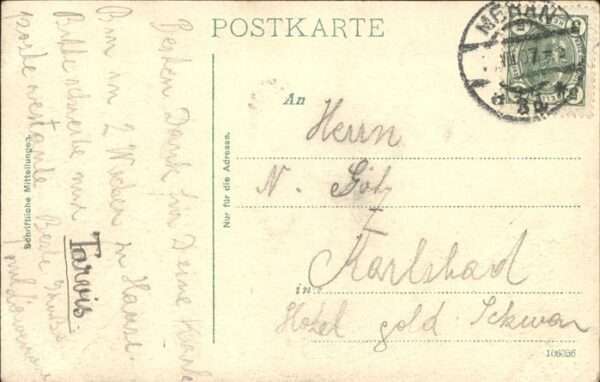 POSTKARTE
MERAN
An
Herrn
N. Götz
Karlsbad
in
Hotel gold. Schwan
106356
Nur für die Adresse.
Schriftliche Mitteilungen.
Besten Dank für Deine Karte
Bin in 2 Wochen zu Hause.
Bitte schreibe nur
Tarvis.
poste restante Beste Grüsse